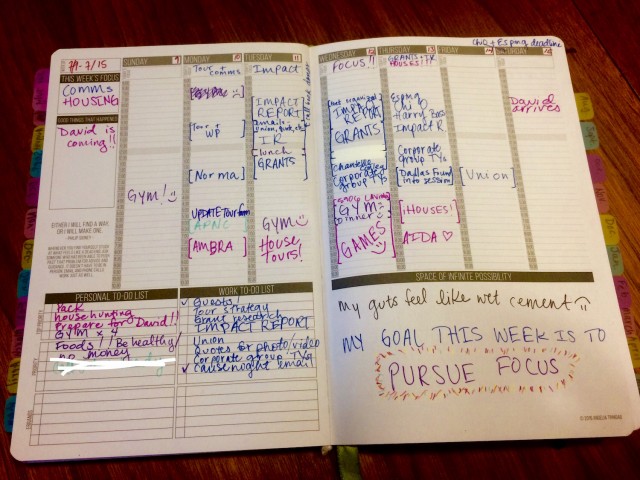 9-7/15
THIS WEEK'S FOCUS
Comms
HOUSING
GOOD THINGS THAT HAPPENED
David is
coming!!
EITHER I WILL FIND A WAY,
OR I WILL MAKE ONE.
PHILIP SIDNEY
SUNDAY 9
GYM!
MONDAY 10
Tour +
comms
[Tour +
WP
[Norma]
UPDATE Tour form
APNC
[AMBRA]
TUESDAY 11
Impact
IMPACT
REPORT
Emails -
IR
lunch
GRANTS
GYM
House
Tours!
WEDNESDAY 12
FOCUS!!
IMPACT
REPORT
GRANTS
Corporate
group TYs
GYM
Dinner
GAMES
THURSDAY 13
GRANTS + IR
HOUSES!!
Esping
Chi O
Impact R.
Corporate
group TYs
[Dallas Found
info session]
[¡HOUSES!]
AIDA ♡
FRIDAY
Union
ChiO + Esping deadline
David
arrives
PERSONAL TO-DO LIST
Pack
househunting
Prepare for David!!
GYM x 4
Foods!! Be healthy!
no money
WORK TO-DO LIST
✓ Guests
Tour strategy
Grant research
IMPACT REPORT
Union
Quotes for photo/video
Corporate group TYs
✓ Cause night email
SPACE OF INFINITE POSSIBILITY
my guts feel like wet cement
MY GOAL THIS WEEK IS TO
PURSUE FOCUS